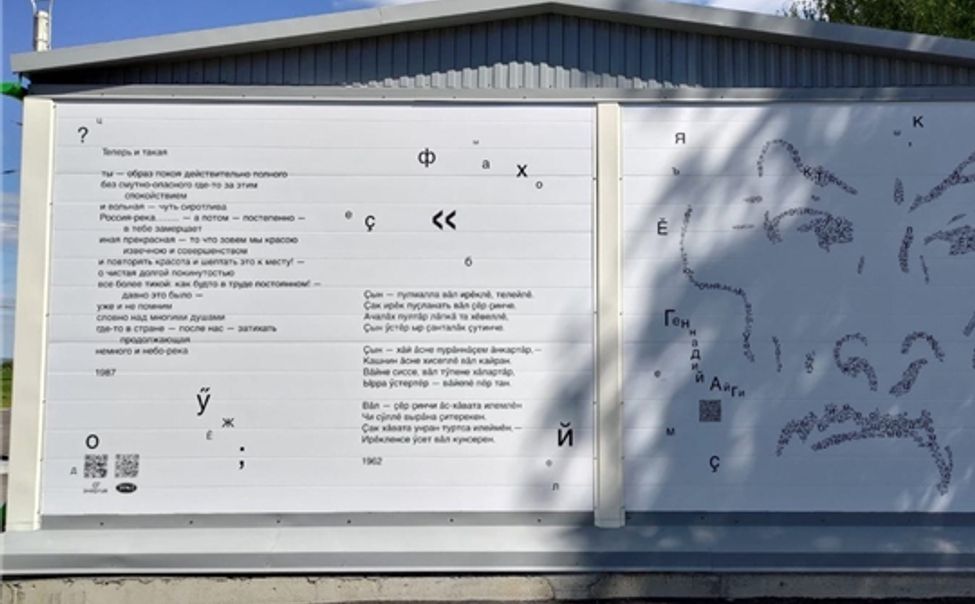 Теперь и такая
ты — образ покоя действительно полного
без смутно-опасного где-то за этим
спокойствием
и вольная — чуть сиротлива
Россия-река........ — а потом — постепенно —
в тебе замерцает
иная прекрасная — то что зовем мы красою
извечною и совершенством
и повторять красота и шептать это к месту! —
о чистая долгой покинутостью
все более тихой: как будто в труде постоянном! —
давно это было —
уже и не помним
словно над многими душами
где-то в стране — после нас — затихать
продолжающая
немного и небо-река
1987
?
ц
ф
а
х
о
е
ç
«
б
Ҫын — пулмалла вӑл ирӗклӗ, телейлӗ.
Ҫак ирӗк пуҫланать вӑл ҫӗр ҫинче.
Ачалӑх пултӑр лӑпкӑ та хӗвеллӗ,
Ҫын ӳстӗр ыр ҫанталӑк ҫутинче.
Ҫын — хӑй ӑсне пурӑннӑҫем ӑнкартӑр, —
Кашнин ӑсне хисеплӗ вӑл кайран.
Вӑйне сиссе, вӑл тӳпене хӑпартӑр,
Ырра ӳстертӗр — вӑйӗпе пӗр тан.
Вӑл — ҫӗр ҫинчи ӑс-хӑват илемлӗн
Чи ҫӳллӗ вырӑна ҫитерекен.
Ҫак хӑвата унран туртса илеймӗн, —
Ирӗклӗхсе ӳсет вӑл кунсерен.
1962
ӳ
ж
Ӗ
;
о
д
энергия
й
о
л
Я
ъ
Ӗ
К
Геннадий Айги
е
м
Ҫ